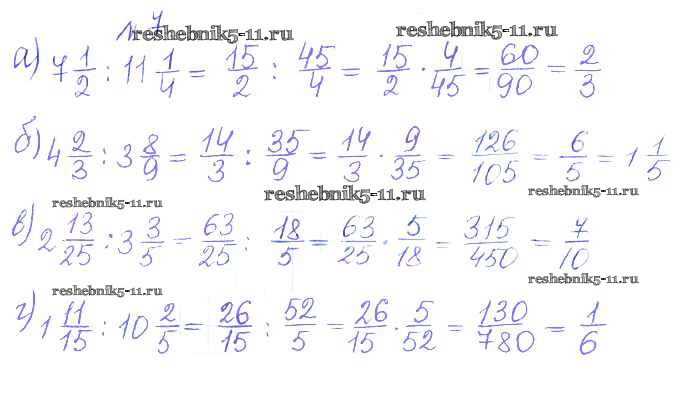 № 7
reshebnik5-11.ru reshebnik5-11.ru
а) 7 1/2 : 11 1/4 = 15/2 : 45/4 = 15/2 · 4/45 = 60/90 = 2/3
б) 4 2/3 : 3 8/9 = 14/3 : 35/9 = 14/3 · 9/35 = 126/105 = 6/5 = 1 1/5
reshebnik5-11.ru reshebnik5-11.ru reshebnik5-11.ru
в) 2 13/25 : 3 3/5 = 63/25 : 18/5 = 63/25 · 5/18 = 315/450 = 7/10
reshebnik5-11.ru reshebnik5-11.ru
г) 1 11/15 : 10 2/5 = 26/15 : 52/5 = 26/15 · 5/52 = 130/780 = 1/6